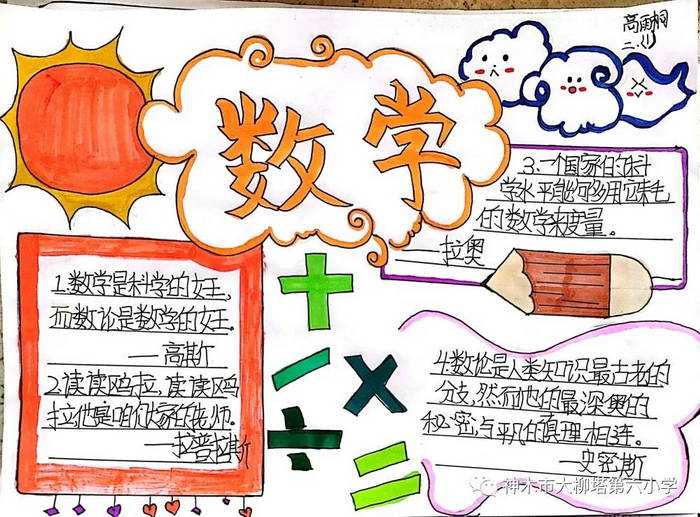 高雨桐
二.(1)
数学
3.一个国家的科
学水平能够用它耗
的数学来度量。
——拉奥
1.数学是科学的女王,
而数论是数学的女王。
——高斯
2.读读鸥拉,读读鸥
拉他是咱们大家的老师。
——拉普拉斯
4.数论是人类知识最古老的
分支,然而他的最深奥的
秘密与平凡的真理相连。
——史密斯
神木市大柳塔第六小学